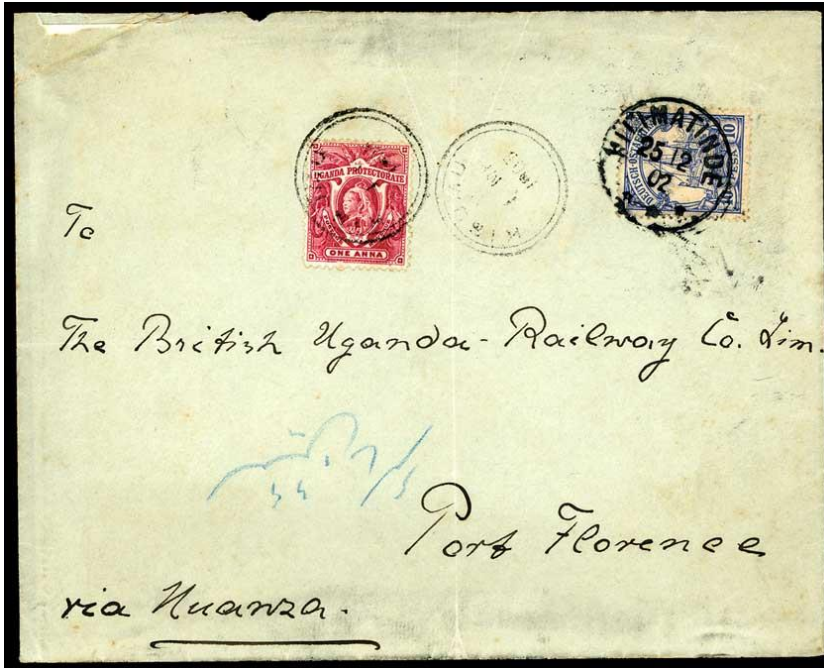 UGANDA PROTECTORATE
ONE ANNA
KISUMU
KILIMATINDE
25 12
02
10
DEUTSCH-OS
To
The British Uganda-Railway Co. Lim.
Port Florence
via Muanza.